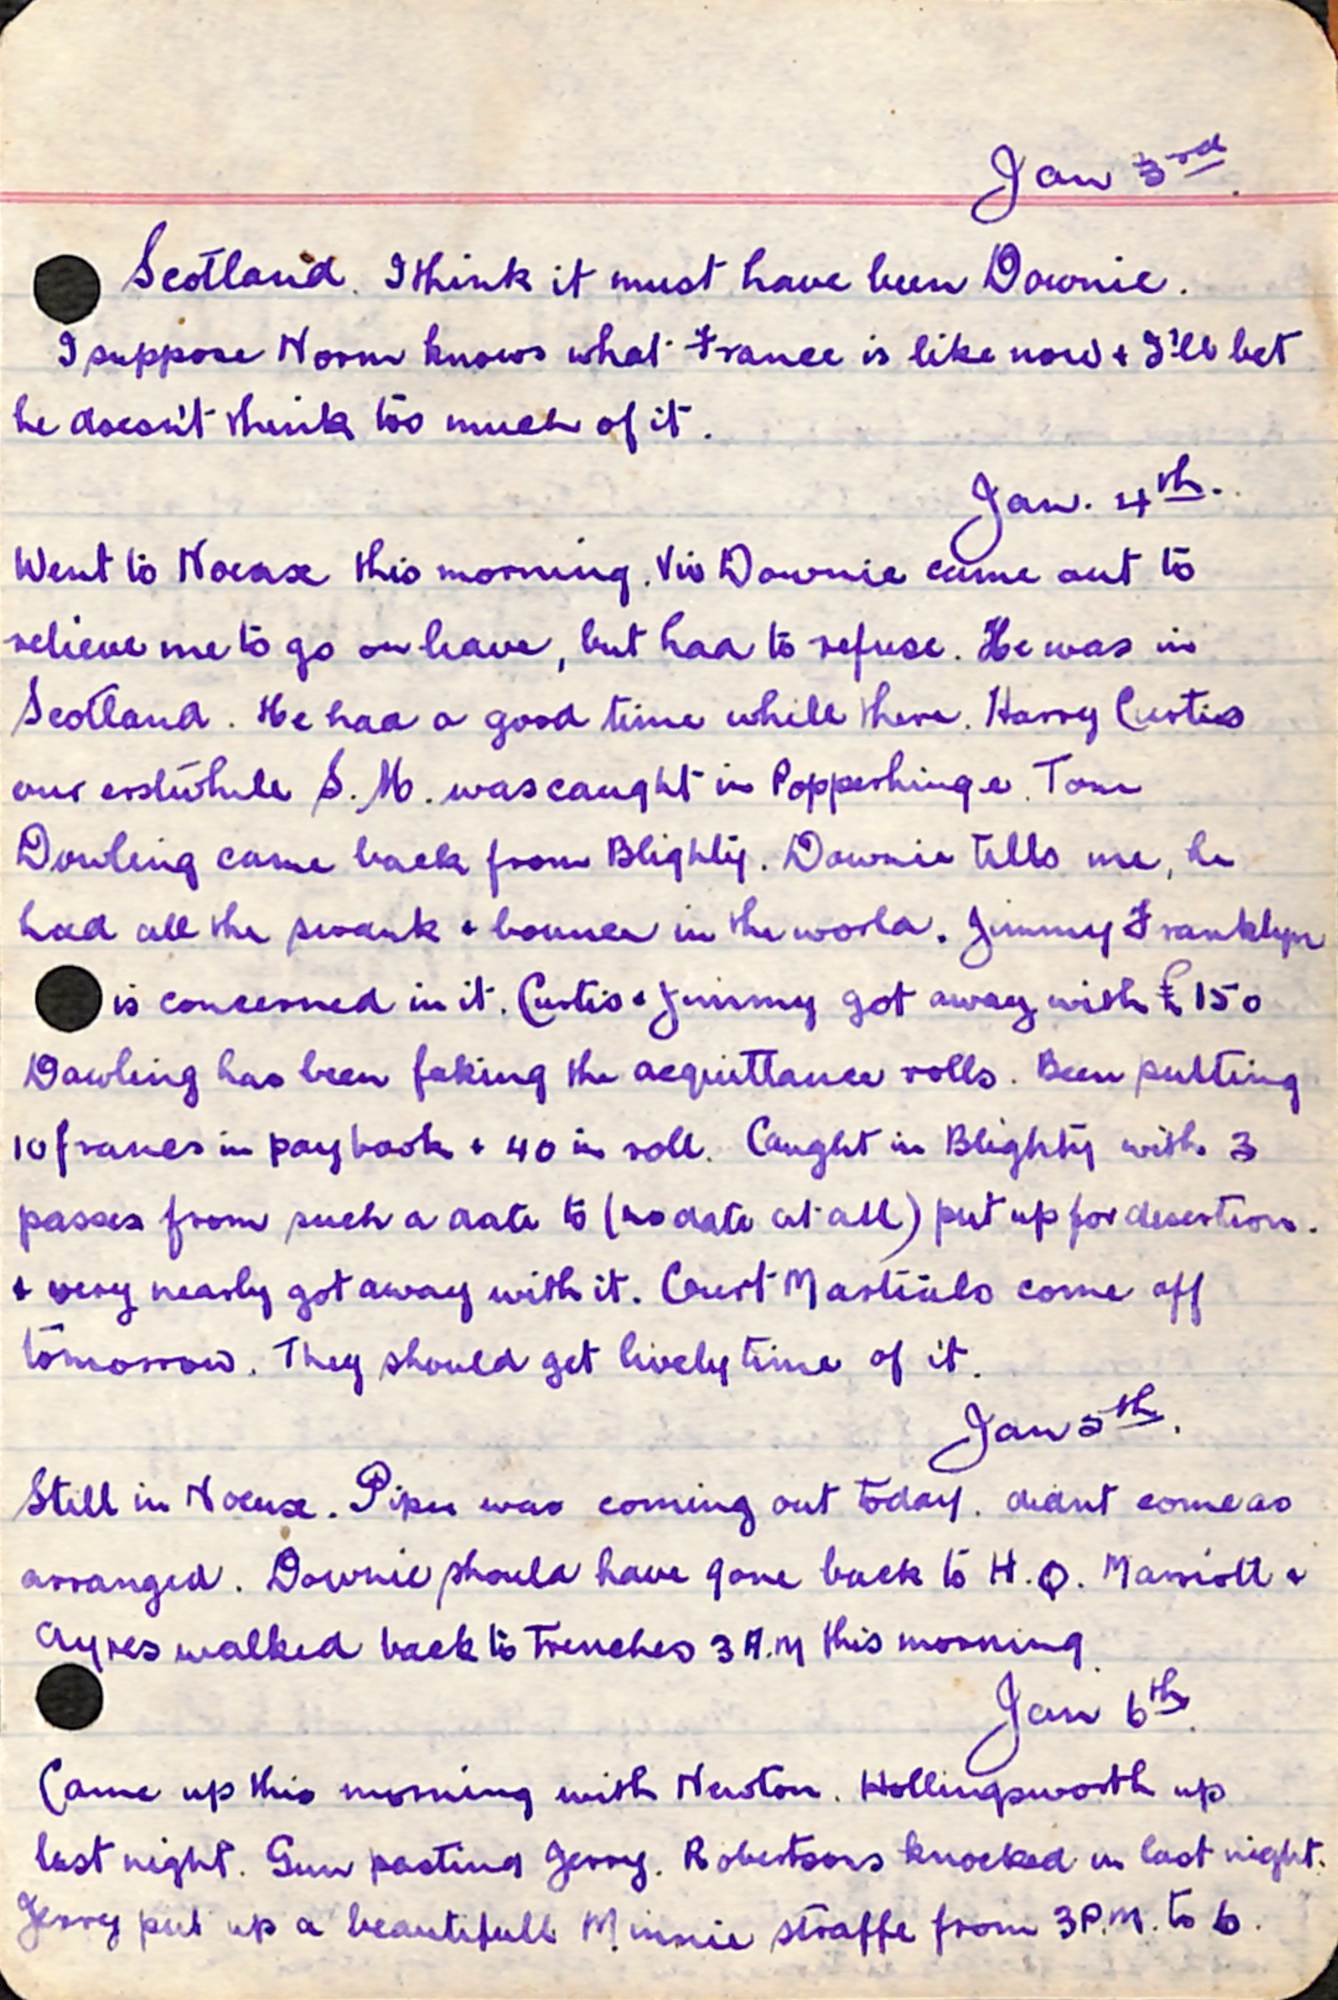 Jan 3rd.
Scotland. I think it must have been Downie.
I suppose Norm knows what France is like now + I'll bet
he doesn't think too much of it.
Jan. 4th.
Went to Noeux this morning. Viv Downie came out to
relieve me to go on leave, but had to refuse. He was in
Scotland. He had a good time while there. Harry Curtis
our erstwhile S.M. was caught in Popperhinge. Tom
Dowling came back from Blighty. Downie tells me, he
had all the swank + bounce in the world. Jimmy Franklyn
is concerned in it. Curtis + Jimmy got away with £150
Dowling has been faking the acquittance rolls. Been putting
10 francs in paybook + 40 in roll. Caught in Blighty with 3
passes from such a date to (no date at all) put up for desertion.
+ very nearly got away with it. Court Martials come off
tomorrow. They should get lively time of it.
Jan 5th.
Still in Noeux. Piper was coming out today. didnt come as
arranged. Downie should have gone back to H.Q. Marriott +
Ayres walked back to Trenches 3 A.M this morning
Jan 6th.
Came up this morning with Newton. Hollingsworth up
last night. Gun pasting Jerry. Robertsons knocked in last night.
Jerry put up a beautifull Minnie straffe from 3 P.M. to 6.